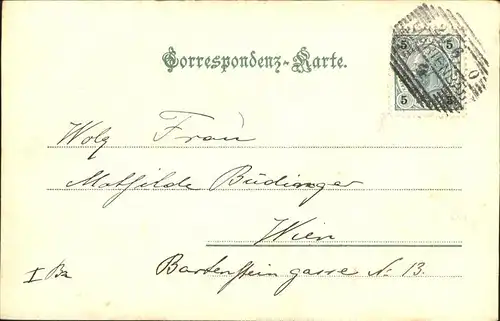 Correspondenz-Karte.
5 5
5
Frau
Mathilde Büdinger
Wien
Bartensteingasse No 13.